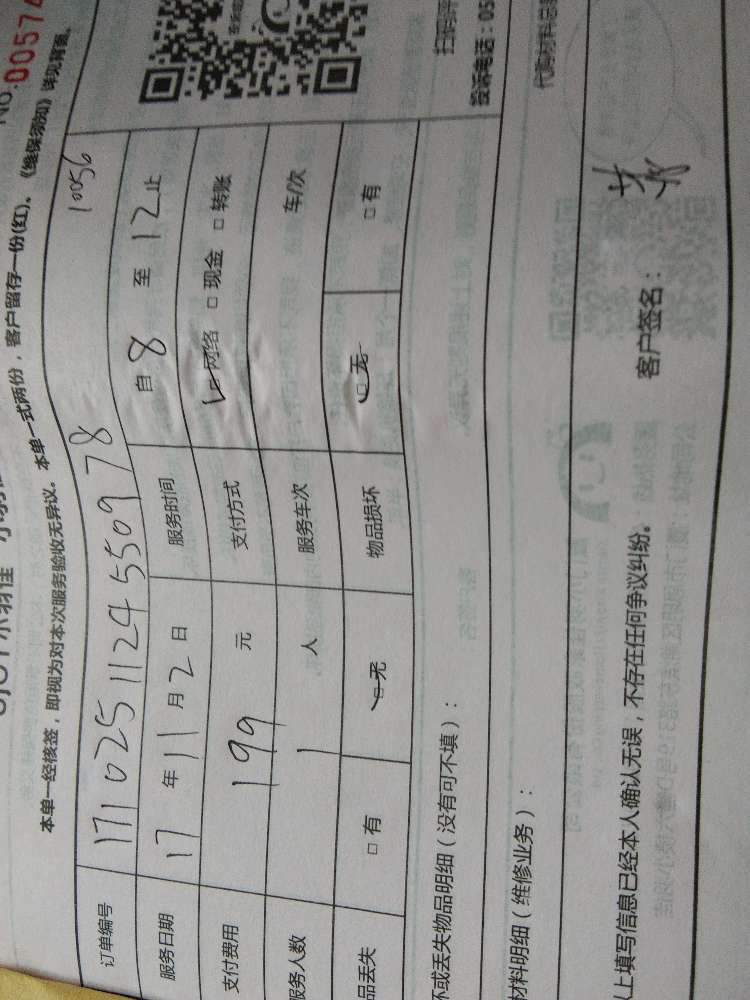 No.00574
本单一经核签，即视为对本次服务验收无异议。本单一式两份，客户留存一份(红)。《维保须知》详见背面。
订单编号 171025112455 0978 10056
服务日期 17 年 11 月 2 日 服务时间 自 8 至 12 止
支付费用 199 元 支付方式 □网络 □现金 □转账
服务人数 1 人 服务车次 车/次
品丢失 □有 □无 物品损坏 □无 □有
坏或丢失物品明细（没有可不填）：
材料明细（维修业务）：
上填写信息已经本人确认无误，不存在任何争议纠纷。 客户签名：
投诉电话：05